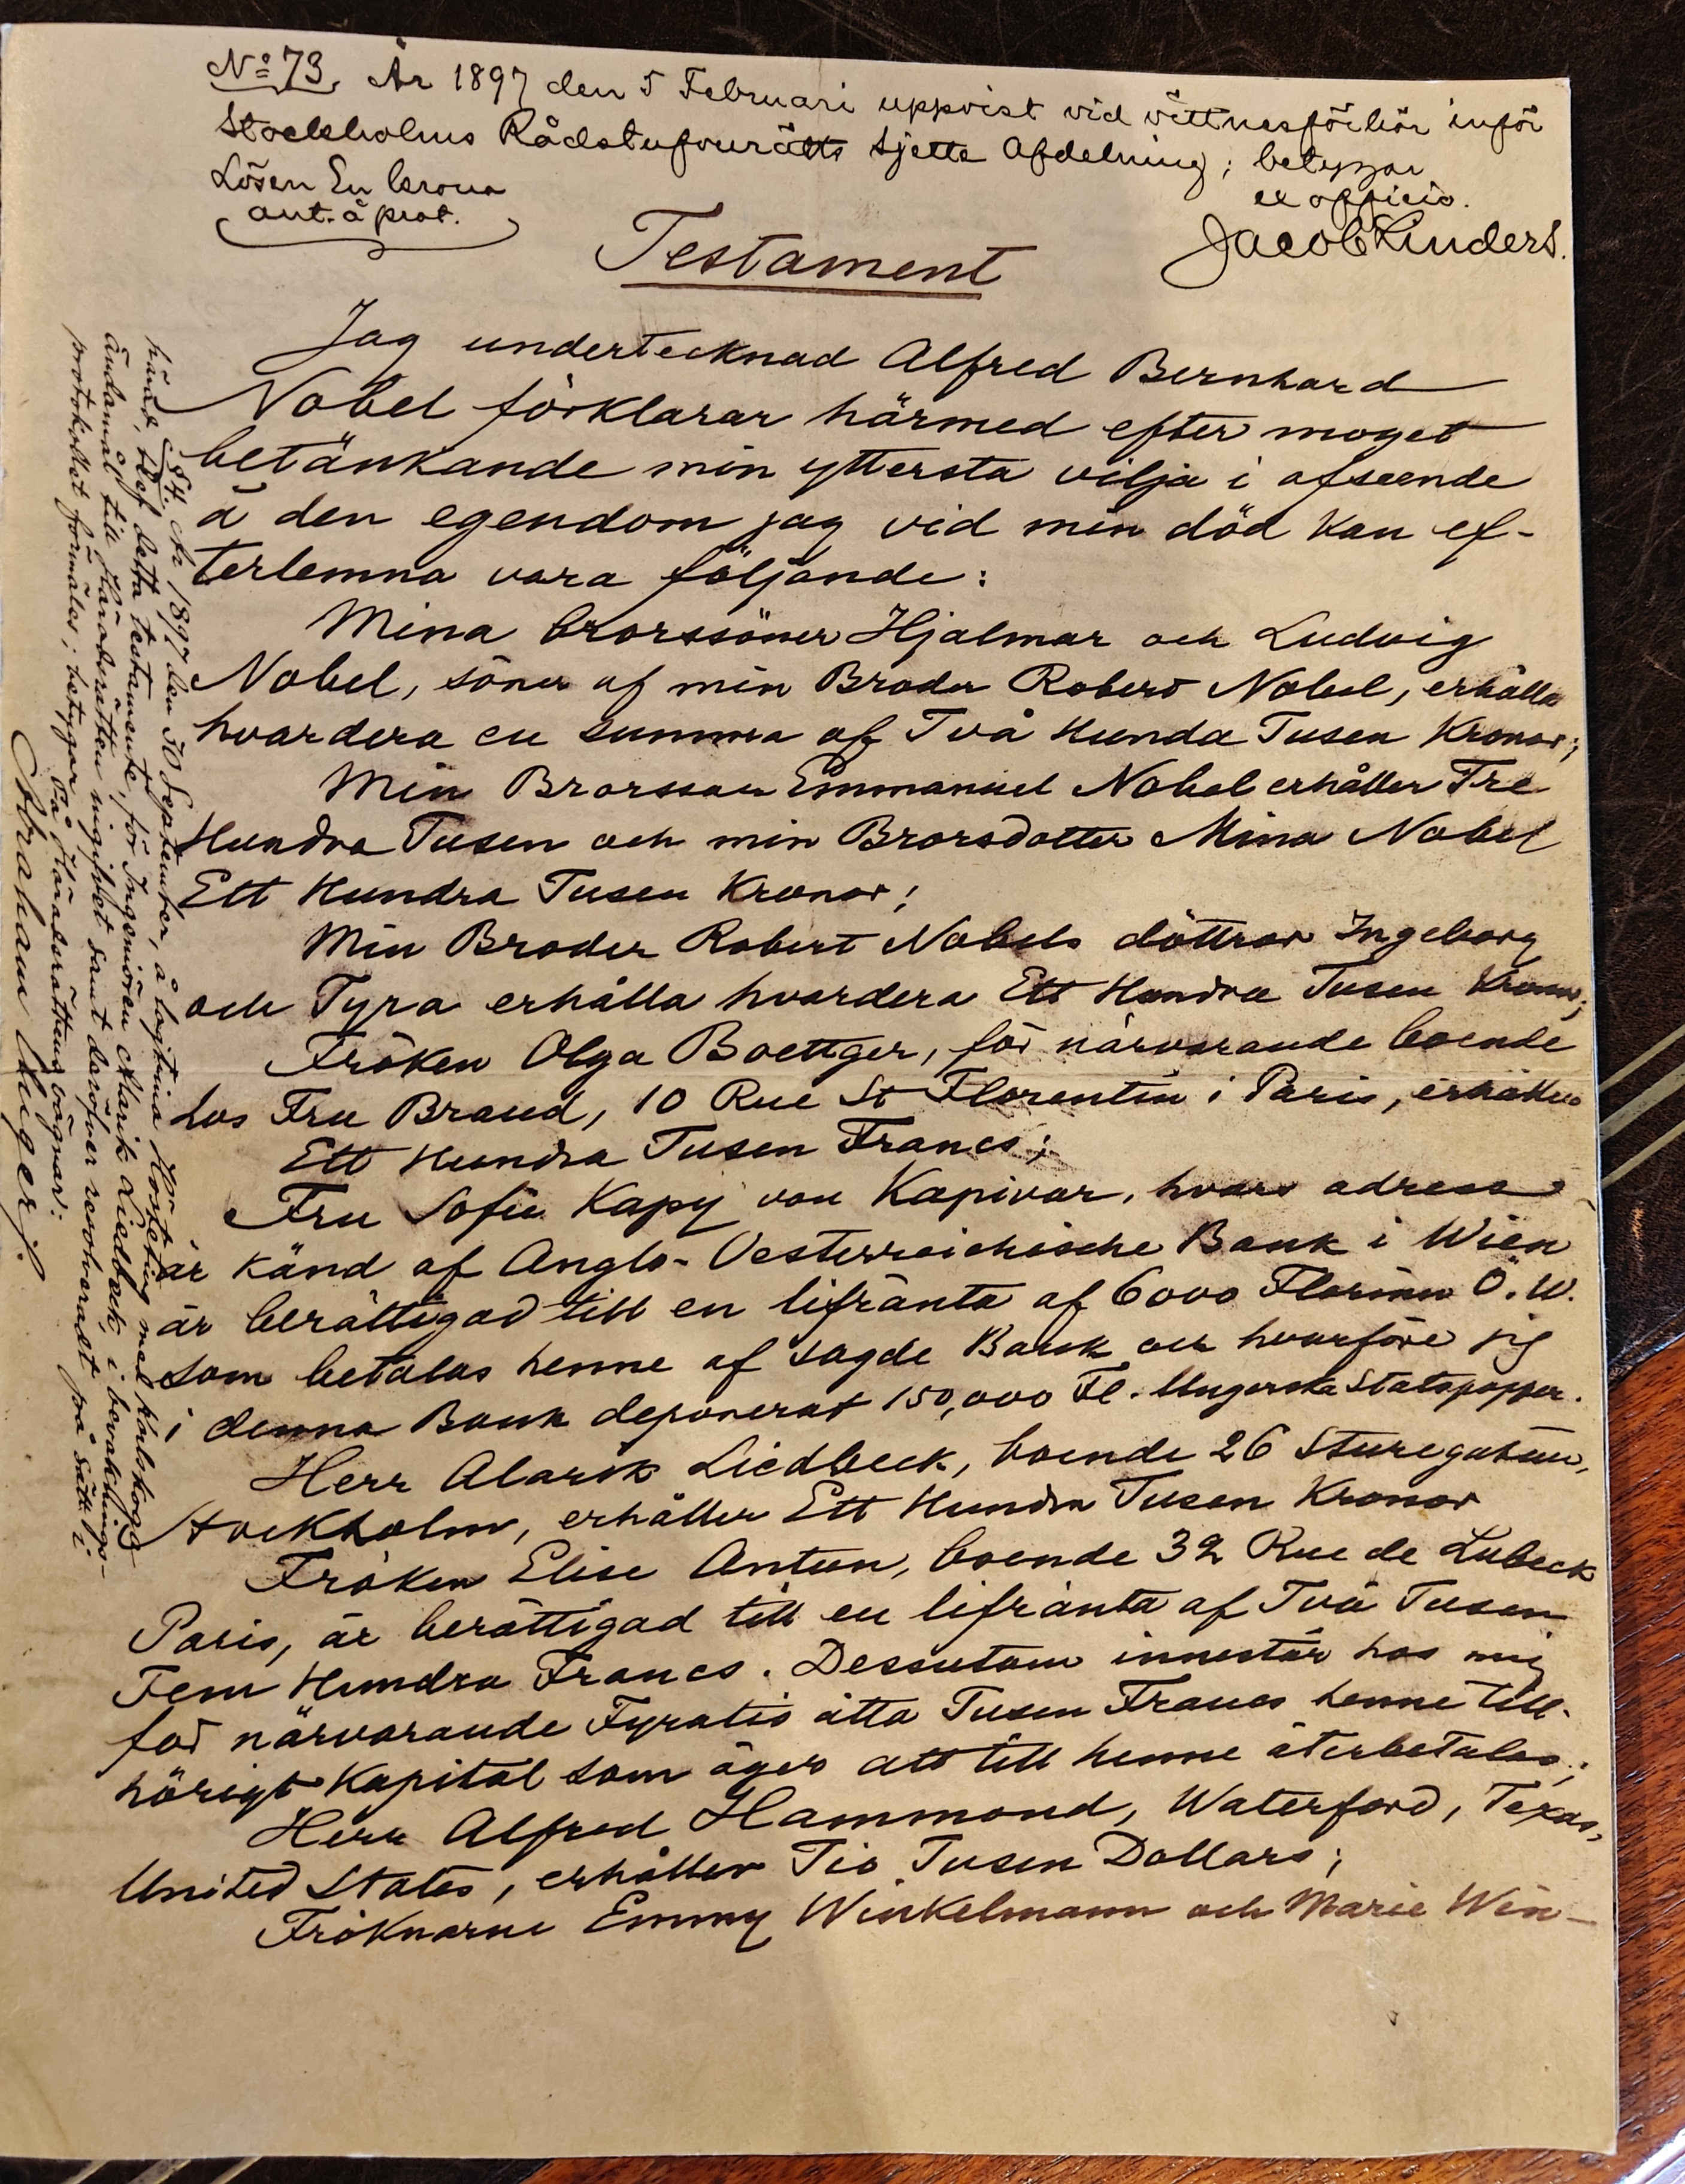 No 73. År 1897 den 5 Februari uppvist vid vittnesförhör inför
Stockholms Rådstufvurätts sjette Afdelning; betygar
Lösen En krona
ex officio.
ant. å prot.
Jacob Linders.
Testament
Jag undertecknad Alfred Bernhard
Nobel förklarar härmed efter moget
betänkande min yttersta vilja i afseende
å den egendom jag vid min död kan ef-
terlemna vara följande:
Mina brorssöner Hjalmar och Ludvig
Nobel, söner af min Broder Robert Nobel, erhålla
hvardera en summa af Två Hunda Tusen Kronor;
Min Brorsson Emmanuel Nobel erhåller Tre
Hundra Tusen och min Brorsdotter Mina Nobel
Ett Hundra Tusen Kronor;
Min Broder Robert Nobels döttrar Ingeborg
och Tyra erhålla hvardera Ett Hundra Tusen Kronor;
Fröken Olga Boettger, för närvarande boende
hos Fru Brand, 10 Rue St Florentin i Paris, erhåller
Ett Hundra Tusen Francs;
Fru Sofie Kapy von Kapivar, hvars adress
är känd af Anglo-Oesterreichische Bank i Wien
är berättigad till en lifränta af 6000 Florins Ö.W.
som betalas henne af sagde Bank och hvarföre jag
i denna Bank deponerat 150,000 Fl. Ungerska Statspapper.
Herr Alarik Liedbeck, boende 26 Sturegatan,
Stockholm, erhåller Ett Hundra Tusen Kronor
Fröken Elise Antun, boende 32 Rue de Lubeck
Paris, är berättigad till en lifränta af Två Tusen
Fem Hundra Francs. Dessutom innestår hos mig
för närvarande Fyratio åtta Tusen Francs henne till-
hörigt Kapital som äger att till henne återbetalas;
Herr Alfred Hammond, Waterford, Texas,
United States, erhåller Tio Tusen Dollars;
Fröknarne Emmy Winkelmann och Marie Win-
§ 4. År 1897 den 30 September, å lagtima Hösteting med Karlskoga
härad, blef detta testamente, för Ingeniören Alarik Liedbeck, i bevaknings-
ändamål till Häradsrätten ingifvet samt deröfver resolveradt på sätt i
protokollet förmäles; betygar På Häradsrättens vägnar:
Abraham Unger /.